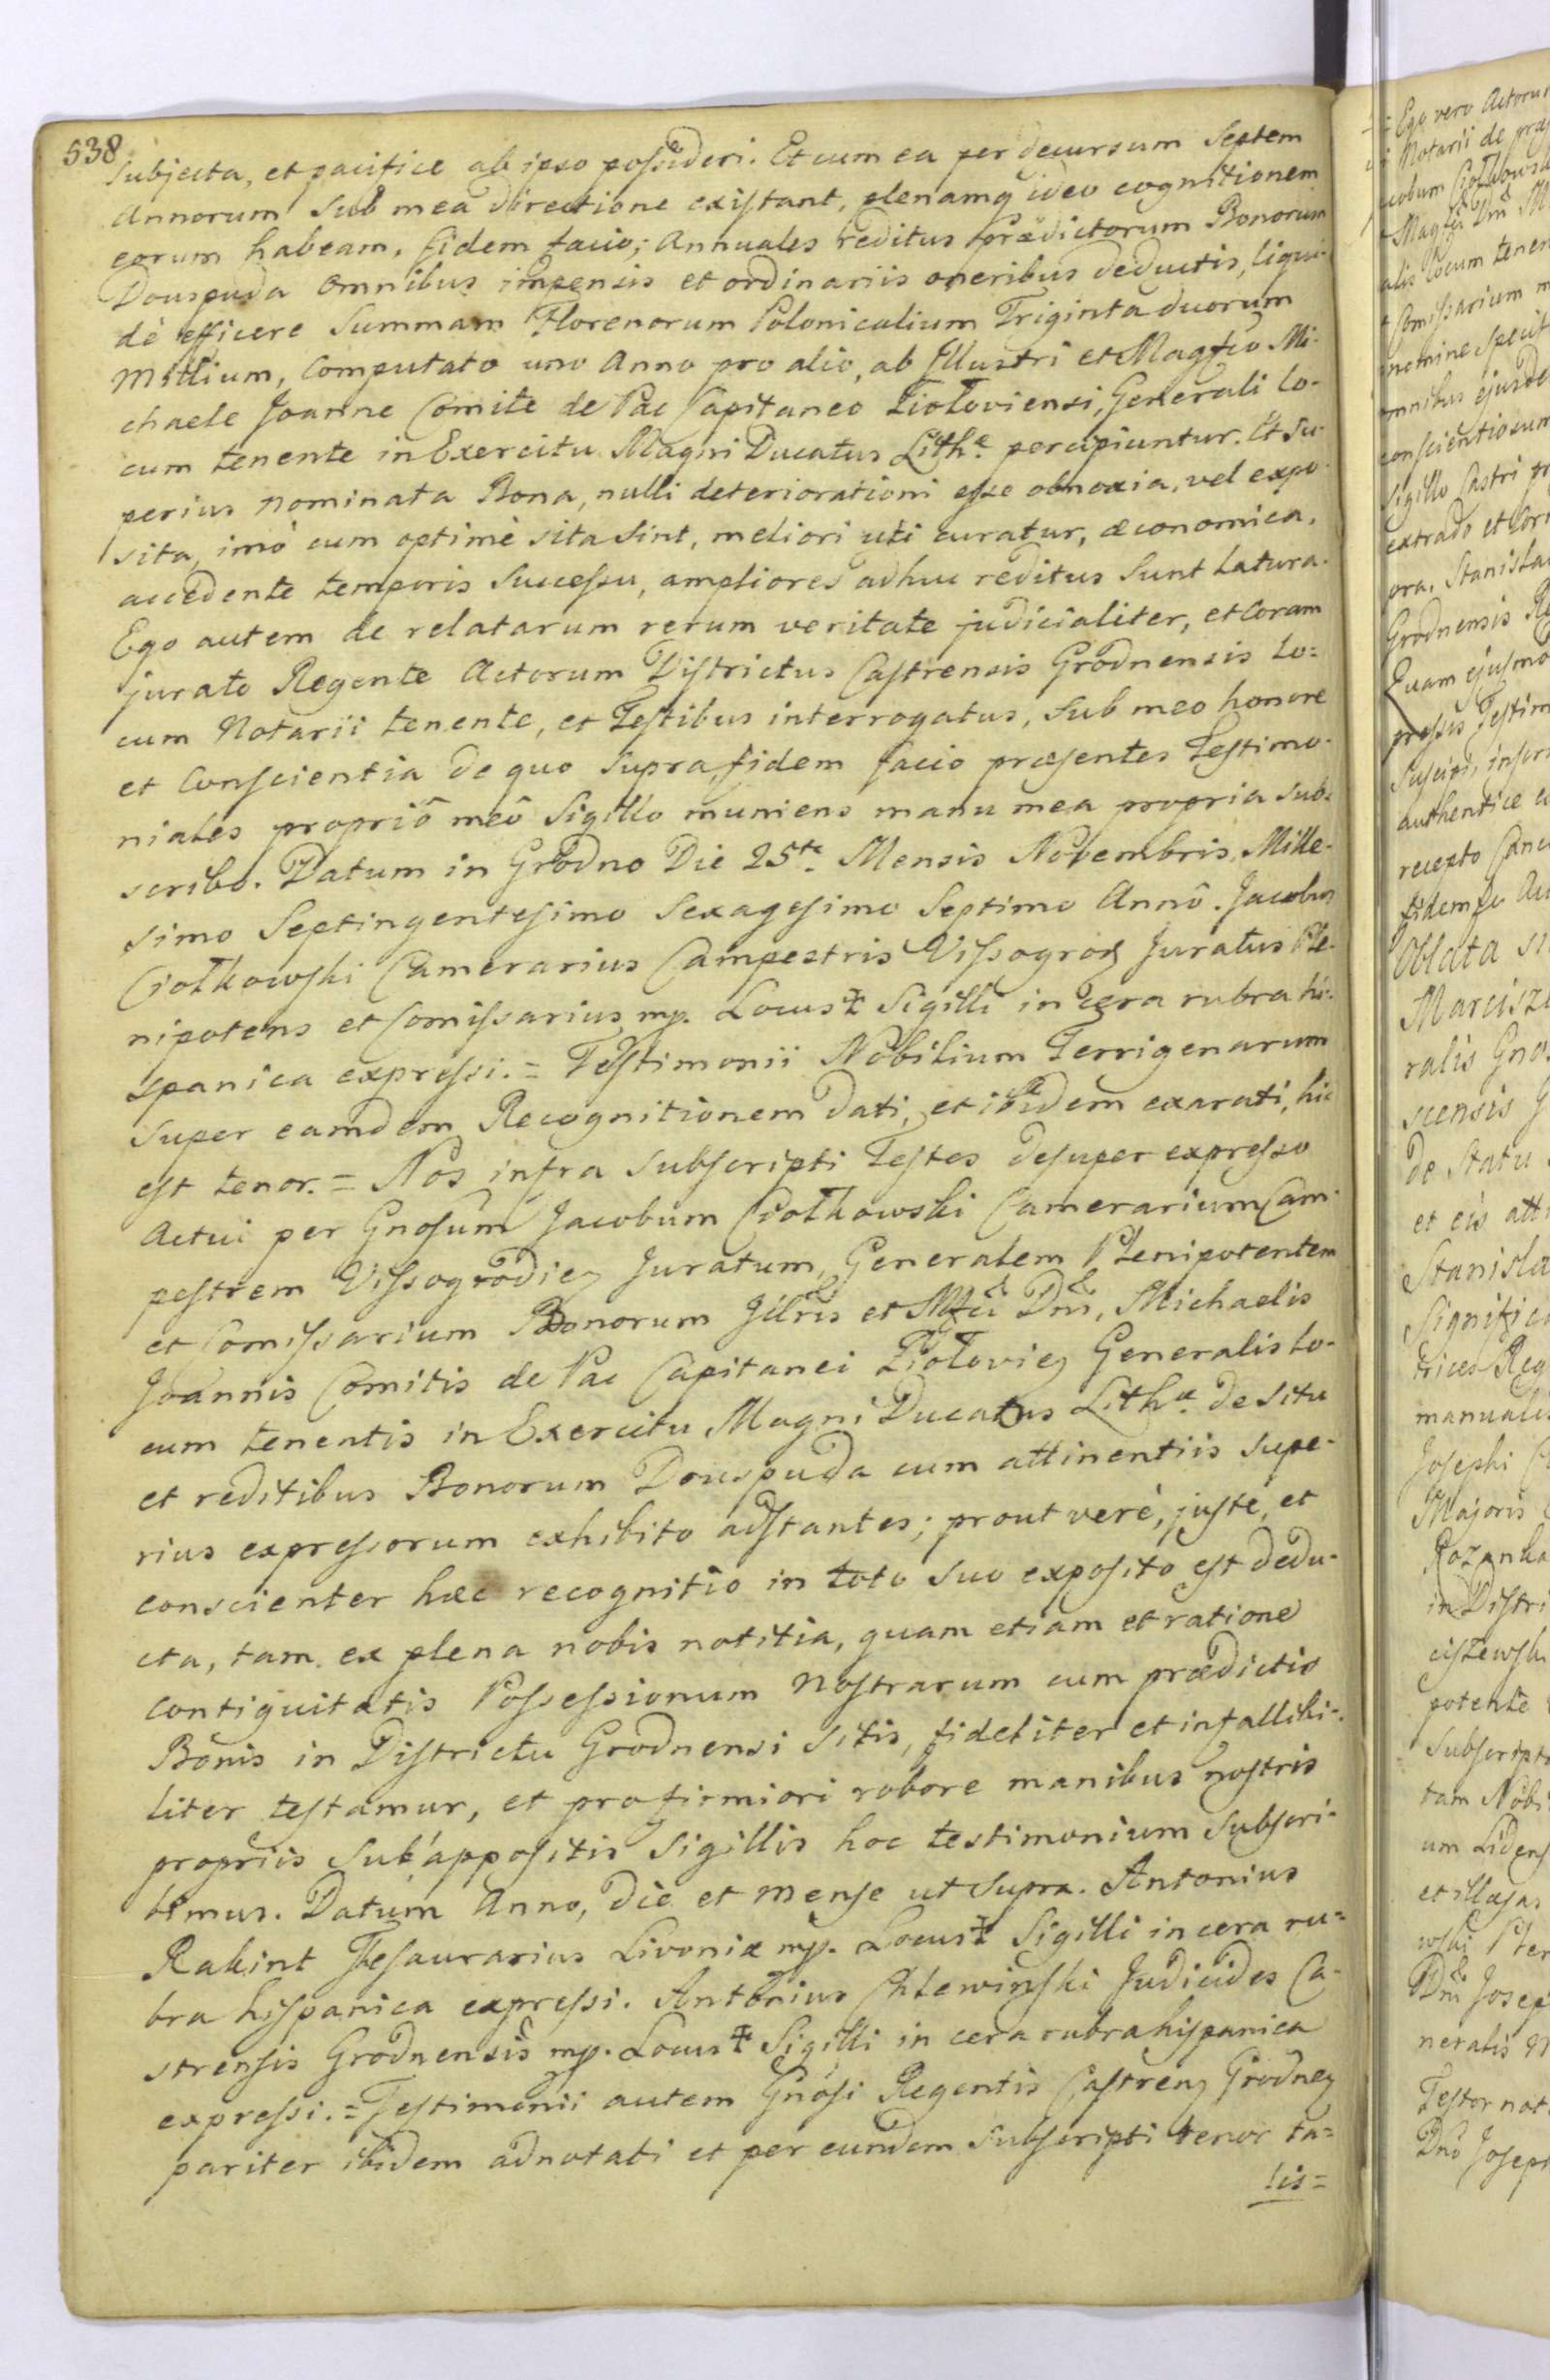 538
Subjecta, et pacifice ab ipso possideri. Et cum ea per decursum Septem
Annorum sub mea directione existant, plenamq ideo cognitionem
eorum habeam, fidem facio; Annuales reditus Prædictorum Bonorum
Douspuda omnibus impensis et ordinariis oneribus deductis, liqui-
dè efficere Summam Florenorum Polonicalium Triginta duorum
Millium, Computato uno Anno pro alio, ab Illustri et Magfco Mi-
chaele Joanne Comite de Pac Capitaneo Ziołoviensi, Generali lo-
cum tenente in Exercitu Magni Ducatus Lithæ percipiuntur. Et Su-
perius nominata Bona, nulli deteriorationi esse obnoxia, vel expo-
sita, imò cum optimè sita sint, meliori uti curatur, œconomica,
accedente temporis Successu, ampliores adhuc reditus Sunt latura.
Ego autem de relatarum rerum veritate judicialiter, et Coram
jurato Regente Actorum Districtus Castrensis Grodnensis lo=
cum Notarii tenente, et Testibus interrogatus, Sub meo honore
et Conscientia de quo Supra, fidem facio præsentes Testimo-
niales propriô meô Sigillo muniens manu mea propria sub-
scribo. Datum in Grodno Die 25ta Mensis Novembris, Mille-
simo Septingentesimo Sexagesimo Septimo Annô. Jacobus
Ciołkowski Camerarius Campestris Vissogrod Juratus Ple-
nipotens et Comissarius mp. Locus Sigilli in cera rubra hi-
spanica expressi. = Testimonii Nobilium Terrigenarum
Super eamdem Recognitionem dati, et ibidem exarati, hic
est tenor. = Nos infra Subscripti Testes desuper expresso
Actui per Gnosum Jacobum Ciołkowski Camerarium Cam-
pestrem Vissogrodien Juratum, Generalem Plenipotentem
et Comissarium Bonorum Illris et Mfci Dni, Michaelis
Joannis Comitis de Pac Capitanei Ziołovien Generalis lo-
cum tenentis in Exercitu Magni Ducatus Lithæ de Situ
et reditibus Bonorum Douspuda cum attinentiis Supe-
rius expressorum exhibito adstantes; prout verè, justè, et
conscienter hæc recognitio in toto suo exposito est dedu-
cta, tam ex plena nobis notitia, quam etiam et ratione
Contiguitatis Possessionum Nostrarum cum prædictis
Bonis in Districtu Grodnensi Sitis, fideliter et infallibi-
liter testamur, et pro firmiori robore manibus nostris
propriis sub appositis Sigillis hoc testimonium Subscri-
bimus. Datum Anno, Die et mense ut supra. Antonius
Rakint Thesaurarius Livoniæ mp. Locus Sigilli in cera ru=
bra hispanica expressi. Antonius Chlewinski Judicides Ca-
strensis Grodnensis mp. Locus Sigilli in cera rubra hispanica
expressi. = Testimonii autem Gnosi Regentis Castren Grodnen
pariter ibidem adnotati et per eumdem Subscripti tenor ta=
lis=
Ego vero Actorum
Notarii de
Magfci Dni M
alis Locum tenen
Comissarium m
nomine
omnibus ejusde
conscientiosum
Sigillo Castri
extrado et
pra. Stanisla
Grodnensis
Quam ejusmo
pressis Testim
Suscipi, inser
authentice
recepto Canc
fidemq
Oblata
Marcisz
ralis Gnos
scensis
de Statu
et eis att
Stanisla
Signific
trices Reg
manuales
Josephi
Majoris
Rozanka
in Distri
potente
Subscripti
tam Nobi
um Lidens
et
wski Plen
Dni Josep
neralis
Testor not
Dno Joseph